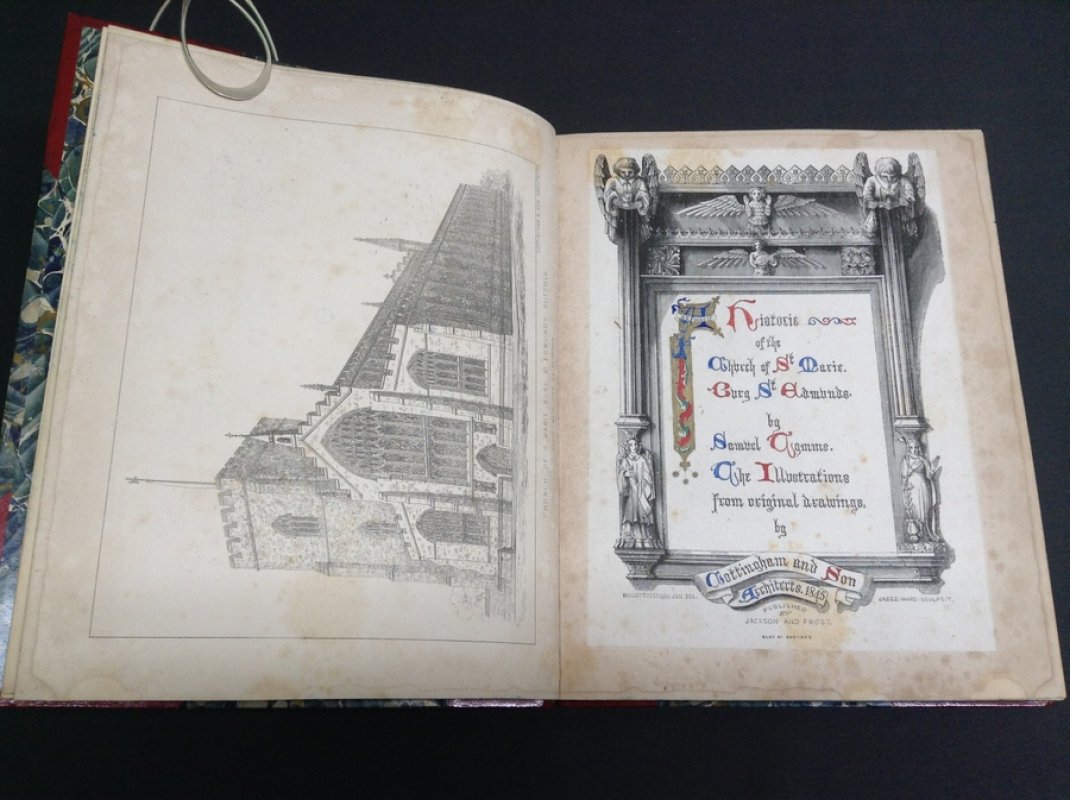 CHURCH OF ST MARIE, BURY ST EDMUND, SUFFOLK.
A Historie
of the
Church of St Marie.
Bury St Edmunds.
by
Samuel Tymms.
The Illustrations
from original drawings,
by
Cottingham and Son
Architects. 1845
JABEZ HARE SCULPSIT.
PUBLISHED
BY
JACKSON AND FROST.
BURY ST EDMUND'S